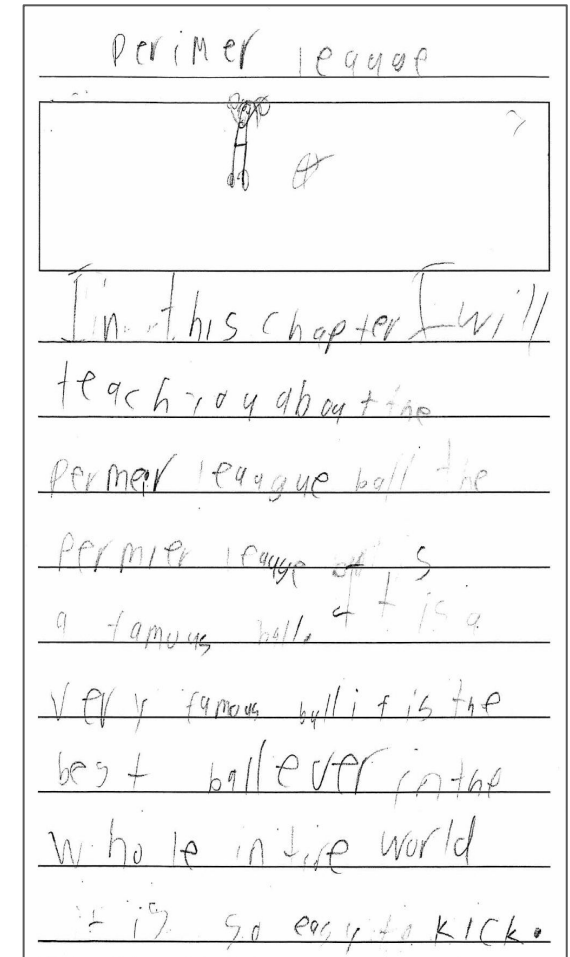 perimer leagae
In this chapter I will
teach you about the
permeir leaague ball the
permier leauge is
a famous ball. it is a
very famous ball it is the
best ball ever in the
whole intire world
it is so easy to kick.